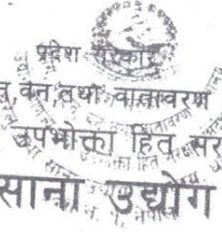 प्रदेश सरकार
वन, तथा वातावरण
उपभोक्ता हित
साना उद्योग